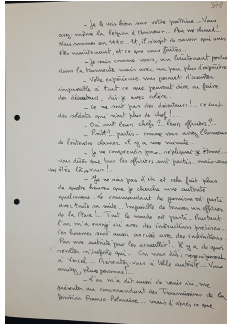 - Je le vois bien sur votre poitrine... Vous
avez même la Légion d'honneur.
Nous sommes en 1940. Et, il s'agit de savoir ce que vous
êtes maintenant et ce que vous faites.
- Je suis comme vous, un lieutenant perdu
dans la tourmente mais avec un peu plus d'expérience
- Votre expérience vous permet d'assister
impassible à tout ce que peuvent dire ou faire
des déserteurs, dis-je avec colère.
- Ce ne sont pas des déserteurs !... ce sont
des soldats qui n'ont plus de chef !...
- Où sont leurs chefs ? Leurs officiers ?
- partis... comme vous avez l'honneur
de l'entendre il y a une minute
- Je ne comprends pas... étonné...
vous dites que tous les officiers sont partis, mais vous
êtes lieutenant !...
- Je ne suis pas d'ici et cela fait plus
de quatre heures que je cherche une autorité
quelconque. Le commandant de garnison est parti
avec toute sa suite. Impossible de trouver un officier
de la Place !... Tout le monde est parti. Pourtant
l'on m'a envoyé ici avec des instructions précises...
Ces hommes sont aussi arrivés avec des instructions.
Pas une autorité pour les accueillir !. Il y a de quoi
On vous dit :
à Présentez-vous à telle autorité... Vous
arrivez, plus personne !...
- L'on m'a dit aussi de venir ici, me
présenter au commandant des Transmissions de la
Division Franco-Polonaise... mais d'après ce que